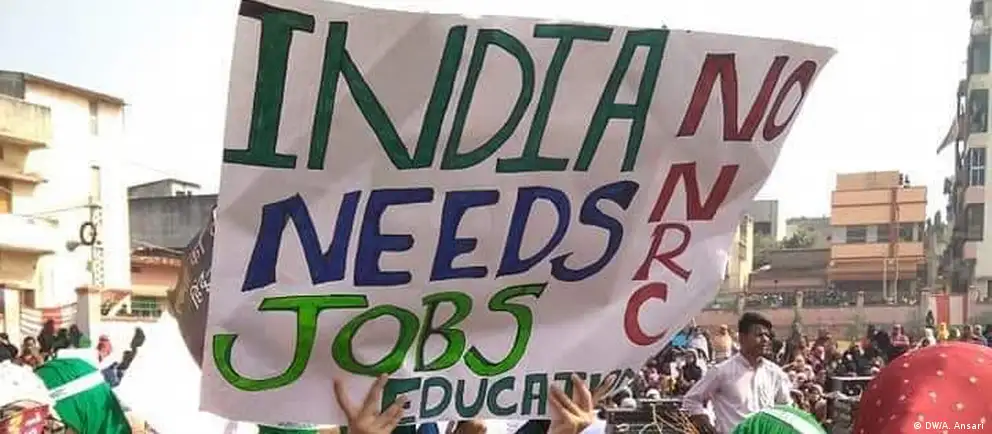 INDIA
NEEDS
JOBS
EDUCATION
NO
NRC
© DW/A. Ansari